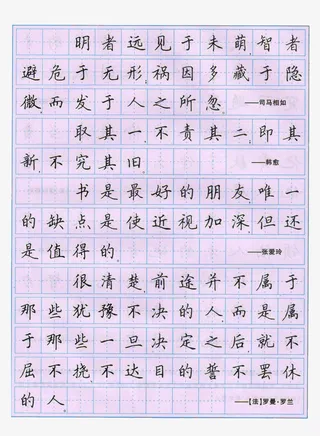 明者远见于未萌,智者
避危于无形,祸因多藏于隐
微,而发于人之所忽。——司马相如
取其一,不责其二;即其
新,不究其旧。——韩愈
书是最好的朋友,唯一
的缺点是使近视加深,但还
是值得的。——张爱玲
很清楚,前途并不属于
那些犹豫不决的人,而是属
于那些一旦决定之后,就不
屈不挠不达目的誓不罢休
的人。——【法】罗曼·罗兰